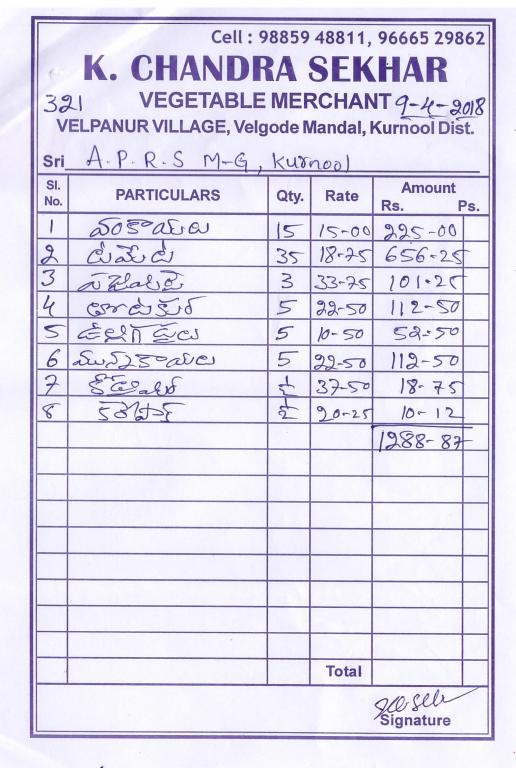 Cell : 98859 48811, 96665 29862
K. CHANDRA SEKHAR
321 VEGETABLE MERCHANT 9-4-2018
VELPANUR VILLAGE, Velgode Mandal, Kurnool Dist.
Sri A.P.R.S M-G, Kurnool
Sl. No. PARTICULARS Qty. Rate Amount Rs. Ps.
1 వంకాయలు 15 15-00 225-00
2 టమోట 35 18-75 656-25
3 3 33-75 101-25
4 5 22-50 112-50
5 ఉల్లిగడ్డలు 5 10-50 52-50
6 మునక్కాయలు 5 22-50 112-50
7 ½ 37-50 18-75
8 కరేపాక్ ½ 20-25 10-12
1288-87
Total
Signature